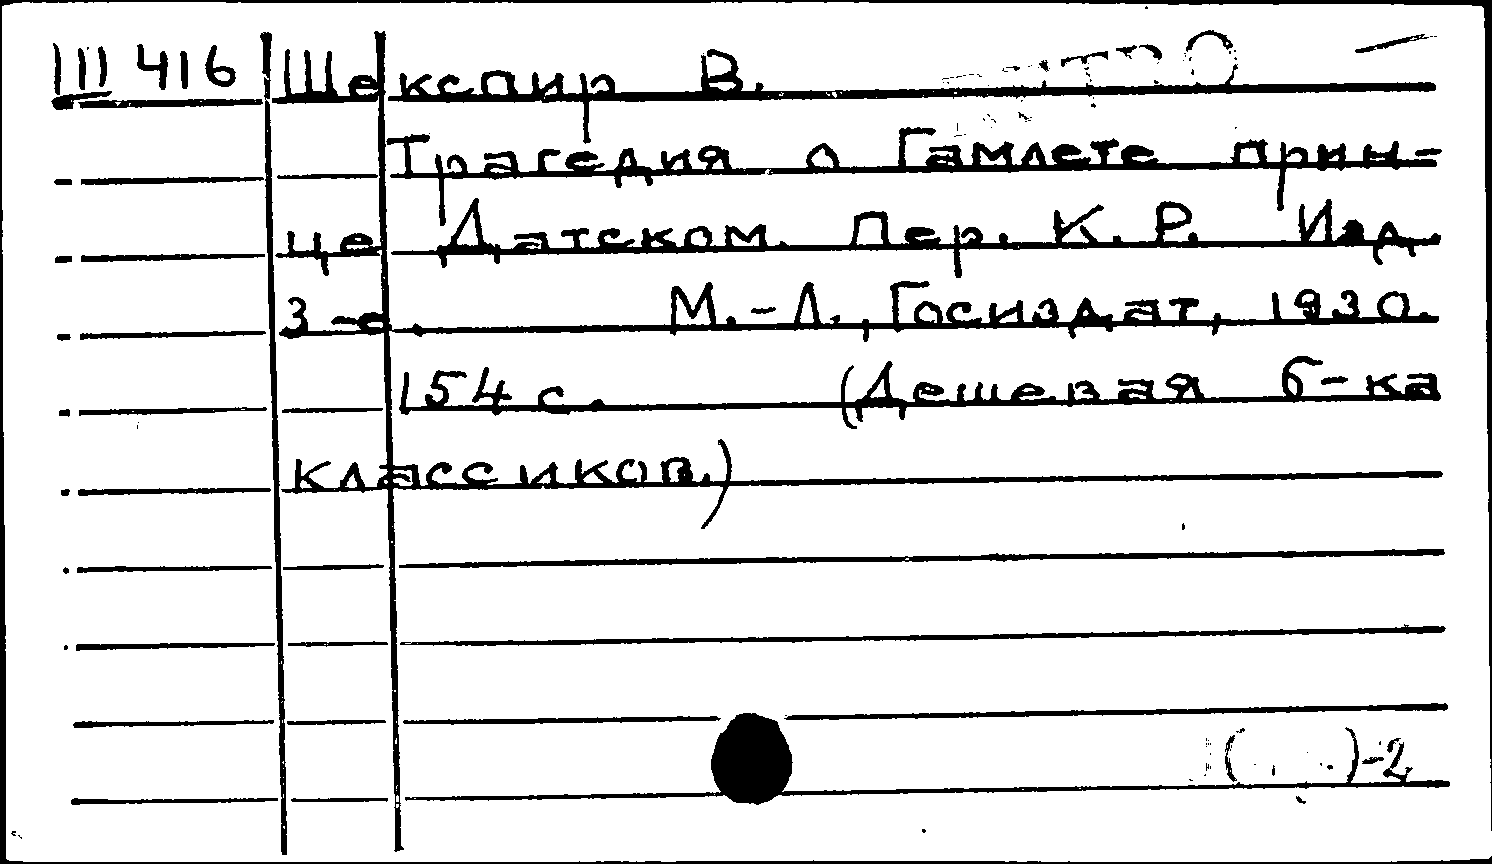 III 416 Шекспир В.
Трагедия о Гамлете прин-
це Датском. Пер. К. Р. Изд.
3-е. М.-Л., Госиздат, 1930.
154 с. (Дешевая б-ка
классиков.)